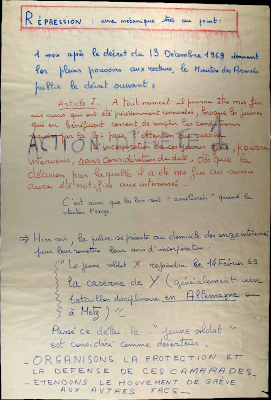 RÉPRESSION : une mécanique très au point :
1 mois après le décret du 13 Décembre 1968 donnant
les pleins pouvoirs aux recteurs, le Ministère des Armées
publie le décret suivant :
Article 7. A tout moment il pourra être mis fin
aux sursis qui ont été précédemment renouvelés, lorsque les jeunes
qui en bénéficient cessent de remplir les conditions
par la loi pour l'obtention du sursis
incorporation de ces jeunes pourra
intervenir, sans considération de date, dès que la
décision par laquelle il a été mis fin au sursis
aura été notifiée aux intéressés.
C'est ainsi que la loi sont "améliorée" quand la
situation l'exige.
→ Hier soir, la police se présente au domicile des onze intéressés
pour leur remettre leur avis d'incorporation :
" Le jeune soldat X rejoindra le 14 Février 69
la caserne de Y (généralement une
bataillon disciplinaire en Allemagne ou
à Metz) "
Passé ce délai le "jeune soldat"
est considéré comme déserteur.
- ORGANISONS LA PROTECTION ET
LA DEFENSE DE CES CAMARADES -
- ETENDONS LE MOUVEMENT DE GREVE
AUX AUTRES FACS -